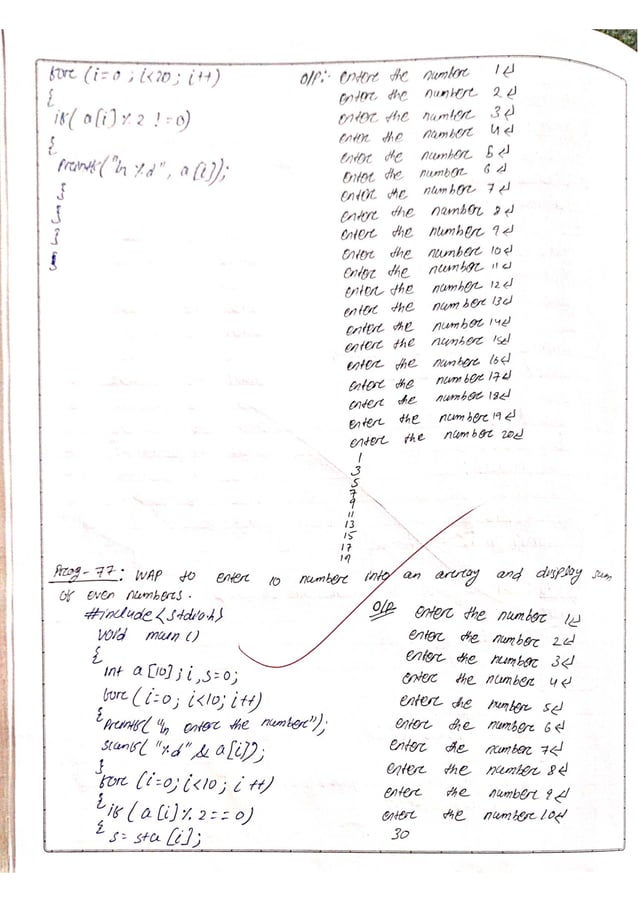 for (i=0 ; i<20 ; i++)
{
if( a[i] % 2 != 0)
{
printf("\n %d", a[i]);
}
}
}
}
O/P:- enter the number 1↵
enter the number 2↵
enter the number 3↵
enter the number 4↵
enter the number 5↵
enter the number 6↵
enter the number 7↵
enter the number 8↵
enter the number 9↵
enter the number 10↵
enter the number 11↵
enter the number 12↵
enter the number 13↵
enter the number 14↵
enter the number 15↵
enter the number 16↵
enter the number 17↵
enter the number 18↵
enter the number 19↵
enter the number 20↵
1
3
5
7
9
11
13
15
17
19
Prog-77: WAP to enter 10 number into an array and display sum
of even numbers.
#include<stdio.h>
void main()
{
int a[10]; i, s=0;
for (i=0; i<10; i++)
{ printf("\n enter the number");
scanf("%d", & a[i]);
}
for (i=0; i<10; i++)
{ if (a[i] % 2 == 0)
{ s= s+a[i];
O/P enter the number 1↵
enter the number 2↵
enter the number 3↵
enter the number 4↵
enter the number 5↵
enter the number 6↵
enter the number 7↵
enter the number 8↵
enter the number 9↵
enter the number 10↵
30